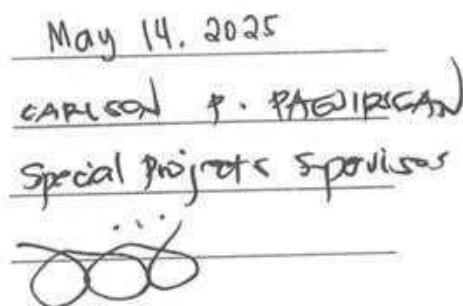 May 14, 2025
CARLSON P. PAGUIRIGAN
Special Projects Spervisor